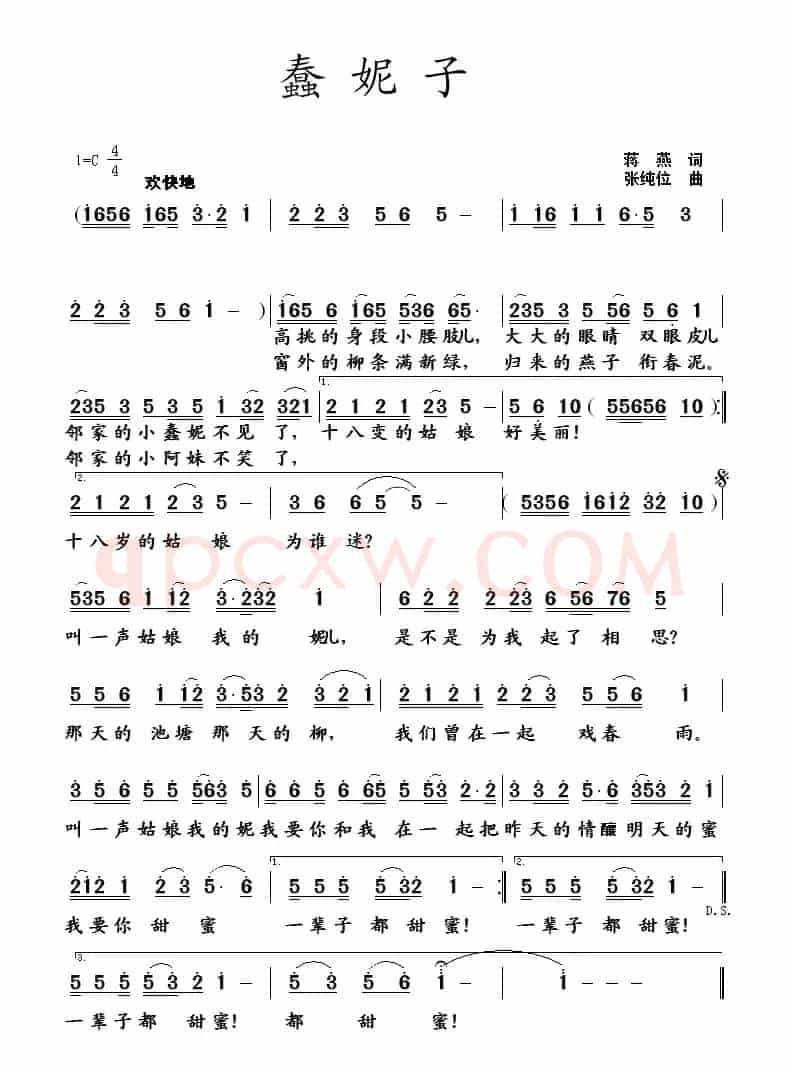 蠢妮子
1=C 4/4
欢快地
蒋 燕 词
张纯位 曲
(1656 165 3·2 1 | 2 2 3 5 6 5 - | 1 16 1 1 6·5 3 |
2 2 3 5 6 1 - ) | 165 6 165 536 65· | 235 3 5 56 5 6 1 |
高挑的身段小腰肢儿，大大的眼睛 双眼皮儿
窗外的柳条满新绿， 归来的燕子 衔春泥。
1.
235 3 5 3 5 1 32 321 | 2 1 2 1 23 5 - | 5 6 10 ( 55656 10 ) :|
邻家的小蠢妮不见 了，十八变的姑 娘 好美丽！
邻家的小阿妹不笑 了，
2.
2 1 2 1 2 3 5 - | 3 6 6 5 5 - | ( 5356 1612 32 10 ) |
十八岁的姑 娘 为谁迷？
qpcxw.COM
535 6 1 12 3·232 1 | 6 2 2 2 23 6 56 76 5 |
叫一声姑娘 我的 妮儿， 是不是 为我 起了 相 思？
5 5 6 1 12 3·53 2 3 2 1 | 2 2 2 2 2 3 5 6 1 |
那天的 池塘 那 天的 柳， 我们曾在一起 戏春 雨。
3 5 6 5 5 563 5 | 6 6 5 6 65 5 53 2·2 | 5 5 5 6 5 353 2 1 |
叫一声姑娘我的妮我要你和我 在一 起把昨天的情酿明天的蜜
1. 2.
212 1 2 3 5· 6 | 5 5 5 5 32 1 - :| 5 5 5 5 32 1 - |
D.S.
我要你 甜 蜜 一辈子 都 甜蜜！ 一辈子 都 甜蜜！
3.
5 5 5 5 3 2 1 - | 5 5 3 2 6 5 1 - | 1 - - - |
一辈子都 甜蜜！ 都 甜 蜜！